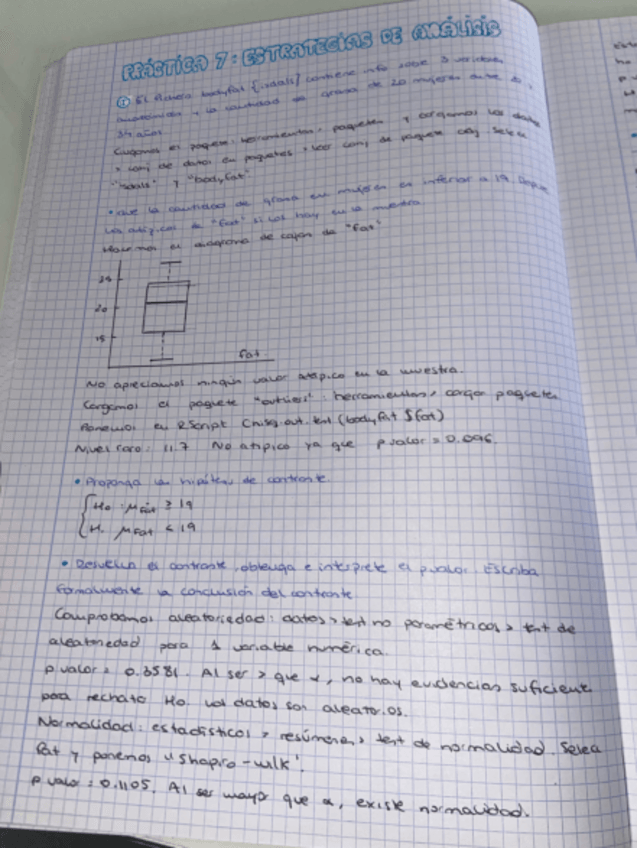 PRÁCTICA 7: ESTRATEGIAS DE ANÁLISIS
① El fichero bodyfat {isdals} contiene info sobre 3 variables
anatómicas y la cantidad de grasa de 20 mujeres entre
34 años.
Cargamos el paquete: herramientas, paquetes y cargamos los datos
> conj de datos en paquetes > leer conj de paquete adj Selecc
"isdals" y "bodyfat"
• que la cantidad de grasa en mujeres es inferior a 19.
los atípicos de "fat" si los hay en la muestra
Hacemos el diagrama de cajas de "fat"
25
20
15
fat
No apreciamos ningún valor atípico en la muestra.
Cargamos el paquete "outliers": herramientas, cargar paquetes
Ponemos en RScript Chisq.out.test (bodyfat $fat)
Nivel raro: 11.7 No atípico ya que pvalor = 0.096.
• Proponga las hipótesis de contraste.
H₀: μ Fat ≥ 19
H₁ μ Fat < 19
• Resuelva el contraste, obtenga e interprete el pvalor. Escriba
formalmente la conclusión del contraste
Comprobamos aleatoriedad: datos > test no paramétricos > test de
aleatoriedad para 1 variable numérica.
p valor = 0.3581. Al ser > que α, no hay evidencias suficiente
para rechazo H₀. Los datos son aleatorios.
Normalidad: estadísticos > resúmenes > test de normalidad. Selecc
fat y ponemos "Shapiro-wilk".
p valor = 0.1105. Al ser mayor que α, existe normalidad.